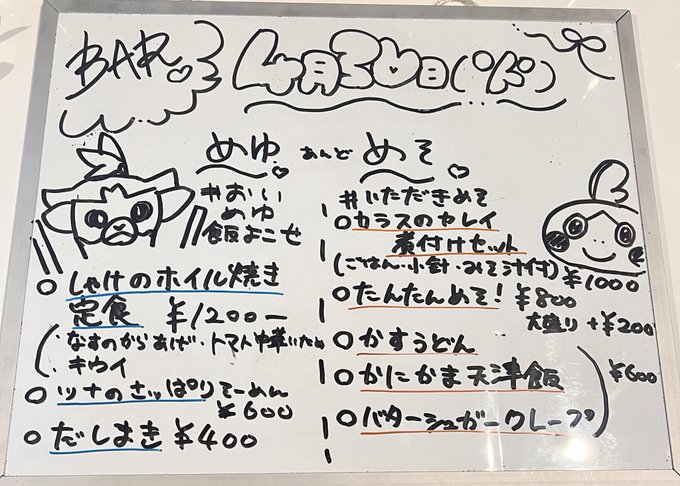 BAR
4月30日(°ド°)
めゆ あんど めそ
#おい
めゆ
飯よこせ
しゃけのホイル焼き
定食 ¥1200-
なすのからあげ・トマト中華いため
キウイ
ツナのさっぱりそーめん
¥600
だしまき ¥400
#いただきめそ
カラスのカレイ
煮付けセット
(ごはん・小針・みそ汁付) ¥1000
たんたんめそ! ¥800
大盛り +¥200
かすうどん
かにかま天津飯
¥600
バターシュガークレープ